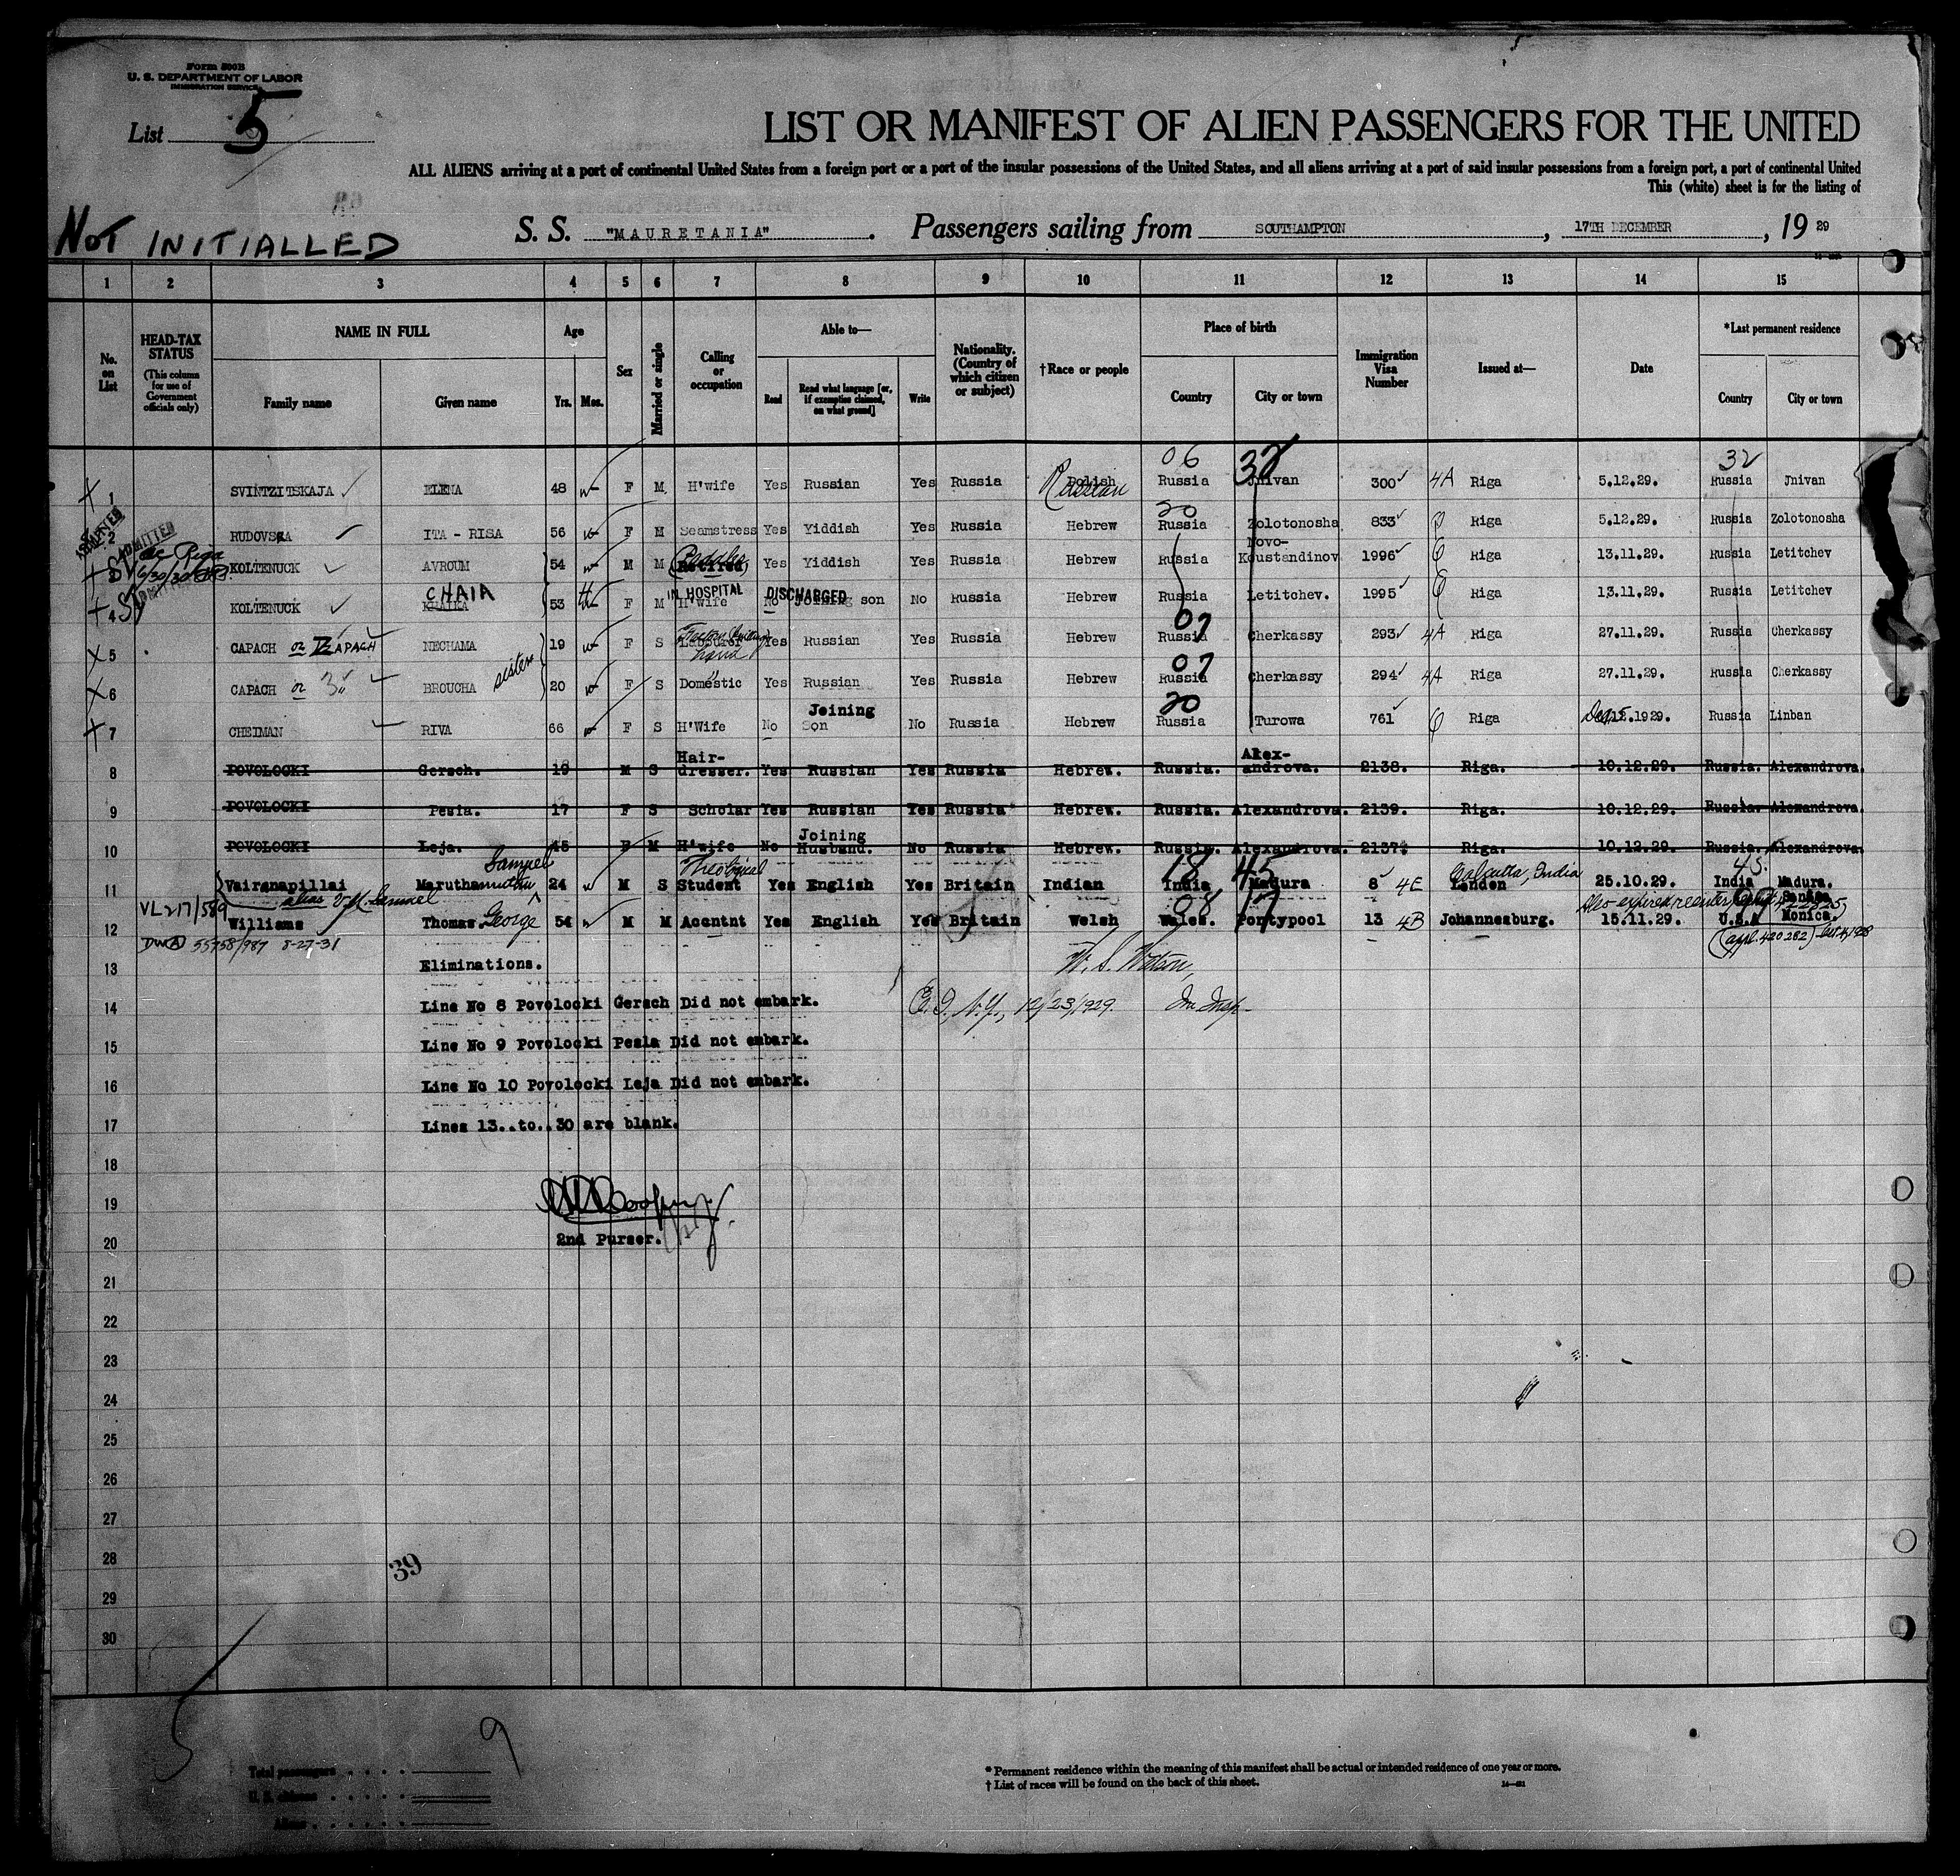 Form 500B
U. S. DEPARTMENT OF LABOR
IMMIGRATION SERVICE
List 5
LIST OR MANIFEST OF ALIEN PASSENGERS FOR THE UNITED
ALL ALIENS arriving at a port of continental United States from a foreign port or a port of the insular possessions of the United States, and all aliens arriving at a port of said insular possessions from a foreign port, a port of continental United
This (white) sheet is for the listing of
NOT INITIALLED
S. S. "MAURETANIA". Passengers sailing from SOUTHAMPTON, 17TH DECEMBER, 19 29
1 2 3 4 5 6 7 8 9 10 11 12 13 14 15
No. on List
HEAD-TAX STATUS (This column for use of Government officials only)
NAME IN FULL Family name Given name
Age Yrs. Mos.
Sex
Married or single
Calling or occupation
Able to— Read Read what language [or, if exemption claimed, on what ground] Write
Nationality. (Country of which citizen or subject)
†Race or people
Place of birth Country City or town
Immigration Visa Number
Issued at—
Date
*Last permanent residence Country City or town
06 32 32
1 SVINTZITSKAJA ELENA 48 F M H'wife Yes Russian Yes Russia Polish Russian Russia Jnivan 300 4A Riga 5.12.29. Russia Jnivan
20
2 RUDOVSKA ITA - RISA 56 F M Seamstress Yes Yiddish Yes Russia Hebrew Russia Zolotonosha 833 Riga 5.12.29. Russia Zolotonosha
ADMITTED
3 KOLTENUCK AVROUM 54 M M Retired Peddler Yes Yiddish Yes Russia Hebrew Russia Novo-Koustandinov 1996 Riga 13.11.29. Russia Letitchev
CHAIA IN HOSPITAL DISCHARGED
4 KOLTENUCK KHAIKA 53 F M H'wife No Joining son No Russia Hebrew Russia Letitchev. 1995 Riga 13.11.29. Russia Letitchev
07
5 CAPACH or TZAPACH NECHAMA 19 F S Labourer Yes Russian Yes Russia Hebrew Russia Cherkassy 293 4A Riga 27.11.29. Russia Cherkassy
sisters
07
6 CAPACH or BROUCHA 20 F S Domestic Yes Russian Yes Russia Hebrew Russia Cherkassy 294 4A Riga 27.11.29. Russia Cherkassy
20
7 CHEIMAN RIVA 66 F S H'Wife No Joining Son No Russia Hebrew Russia Turowa 761 Riga Dec. 12.1929. Russia Linban
8 POVOLOCKI Gersch. 19 M S Hair-dresser. Yes Russian Yes Russia Hebrew. Russia. Alex-androva. 2138. Riga. 10.12.29. Russia. Alexandrova.
9 POVOLOCKI Pesia. 17 F S Scholar Yes Russian Yes Russia Hebrew. Russia. Alexandrova. 2139. Riga. 10.12.29. Russia. Alexandrova.
10 POVOLOCKI Leja. 45 F M H'wife No Joining Husband. No Russia Hebrew. Russia. Alexandrova. 2137. Riga. 10.12.29. Russia. Alexandrova.
Samuel Theological 18 45 Calcutta, India 45
11 Vairanapillai Maruthamuthu 24 M S Student Yes English Yes Britain Indian India Madura 8 4E London 25.10.29. India Madura.
alias V.M. Samuel
VL217/589 08 17
12 Williams Thomas. George 54 M M Accntnt Yes English Yes Britain Welsh Wales. Pontypool 13 4B Johannesburg. 15.11.29. U.S.A Santa Monica.
55758/987 8-27-31
13 Eliminations. W. S. Watson,
14 Line No 8 Povolocki Gersch Did not embark. E. I., N.Y., 12/23/1929. Im. Insp.
15 Line No 9 Povolocki Pesia Did not embark.
16 Line No 10 Povolocki Leja Did not embark.
17 Lines 13..to..30 are blank.
18
19
20 2nd Purser.
21
22
23
24
25
26
27
28
39
29
30
9
Total passengers
U. S. citizens
Aliens
* Permanent residence within the meaning of this manifest shall be actual or intended residence of one year or more.
† List of races will be found on the back of this sheet.